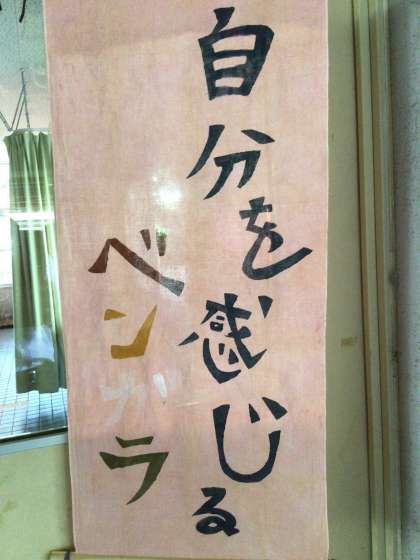 自分を感じる
ベンガラ